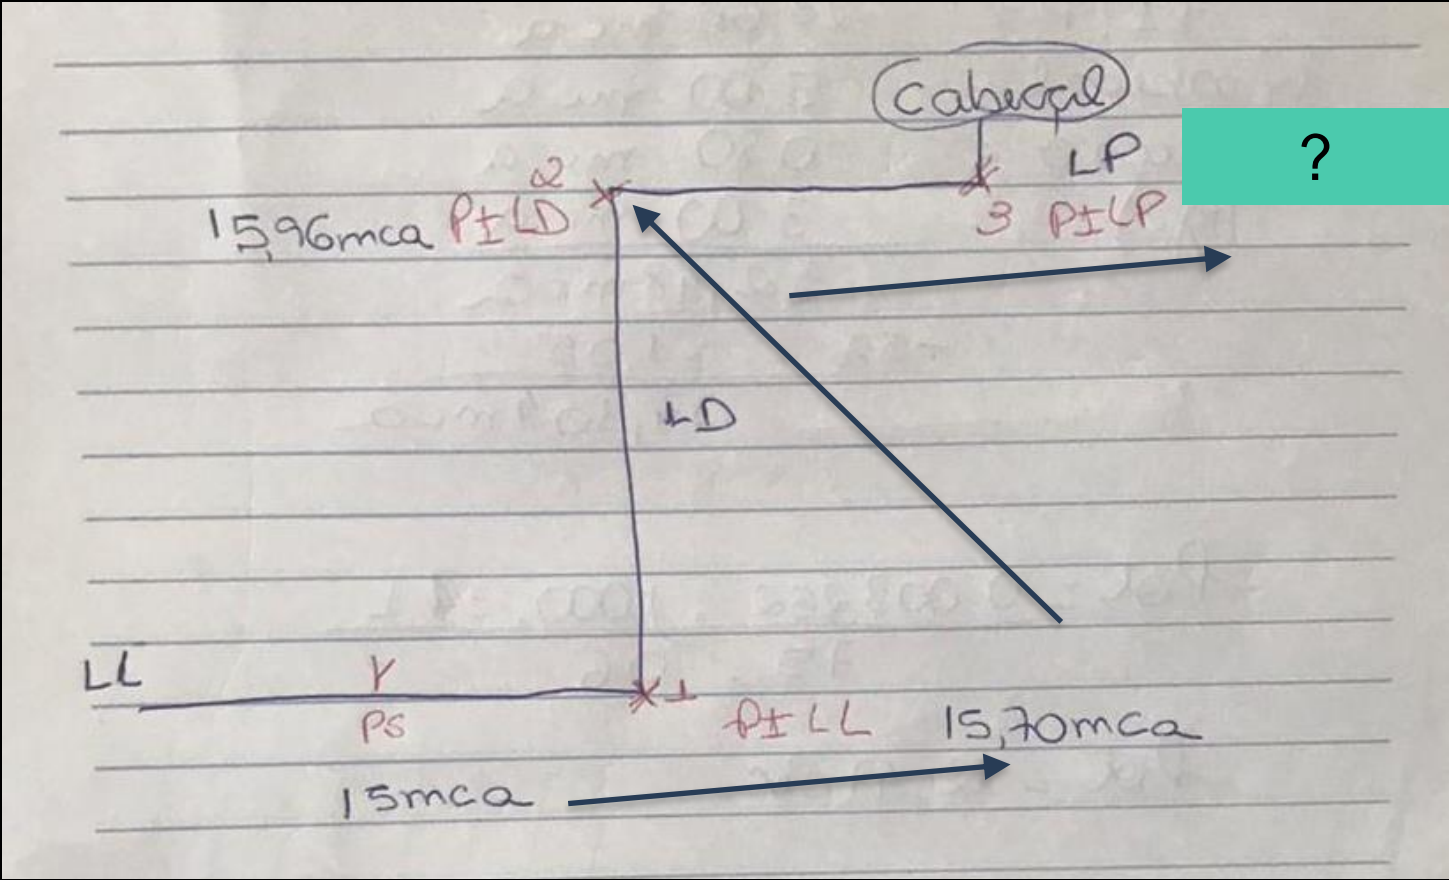 Cabeçal
?
2
LP
15,96mca PILD
3 PILP
LD
LL
Y
1
PS
PILL 15,70mca
15mca